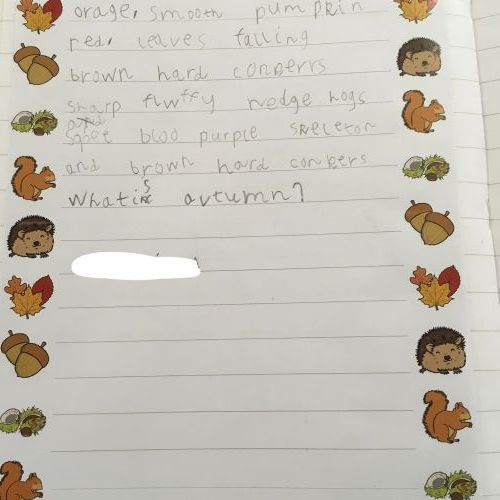 orage, smooth pumpkin
red, leaves falling
brown hard conberrs
sharp flwffy hedge hogs
bloo purple skeletor
and brown hard conbers
What is avtumn?